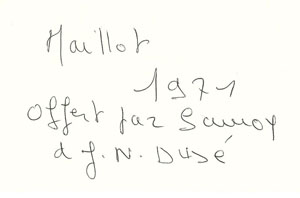 Maillot
1971
Offert par Samoy
à J. N. Dusé